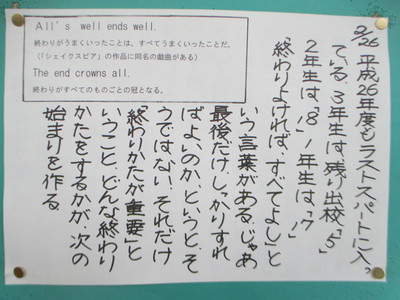 All's well ends well.
終わりがうまくいったことは、すべてうまくいったことだ。
(「シェイクスピア」の作品に同名の戯曲がある)
The end crowns all.
終わりがすべてのものごとの冠となる。
2/26 平成26年度もラストスパートに入っ
ている。3年生は、残り出校「5」
2年生は、「18」1年生は、「17」!
「終わりよければ、すべてよし」と
いう言葉がある。じゃあ
最後だけ、しっかりすれ
ばよいのか、というと、そ
うではない。それだけ
「終わりかたが重要」と
いうこと、どんな終わり
かたをするかが、次の
始まりを作る。